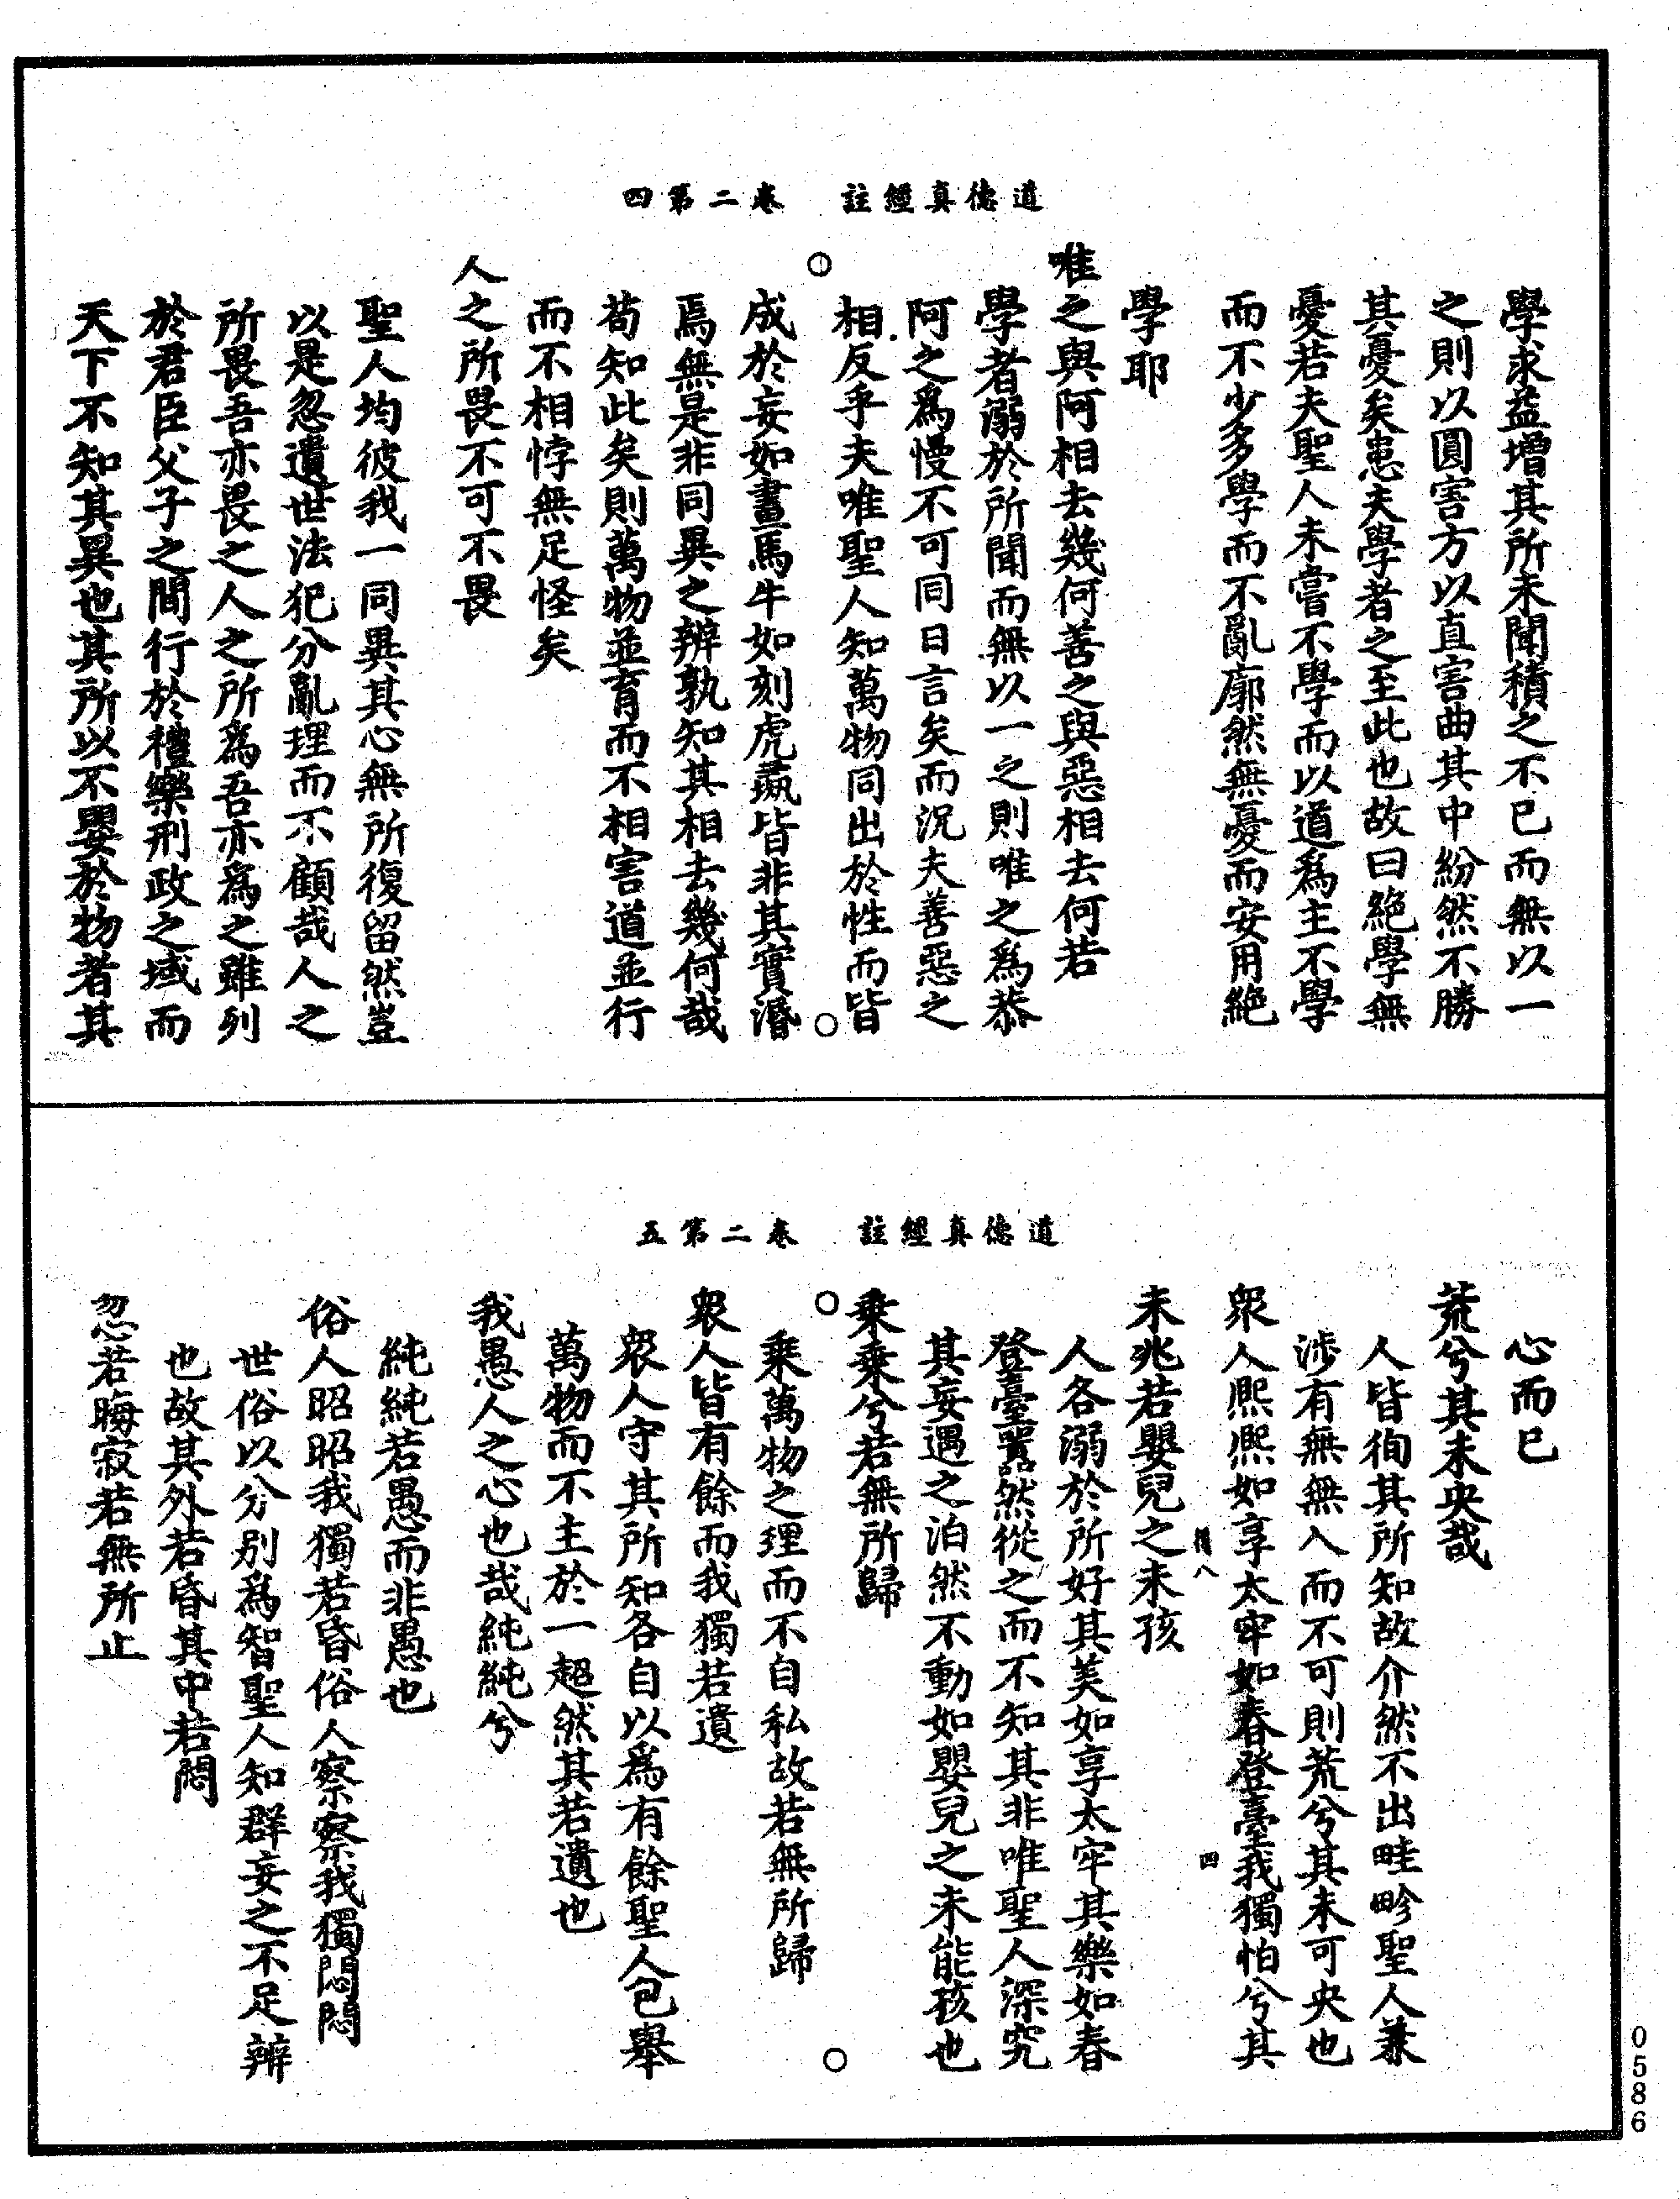 道德真經註　卷二第四
學求益增其所未聞積之不已而無以一
之則以圓害方以直害曲其中紛然不勝
其憂矣患夫學者之至此也故曰絕學無
憂若夫聖人未嘗不學而以道爲主不學
而不少多學而不亂廓然無憂而安用絕
學耶
唯之與阿相去幾何善之與惡相去何若
學者溺於所聞而無以一之則唯之爲恭
阿之爲慢不可同日言矣而況夫善惡之
相反乎夫唯聖人知萬物同出於性而皆
成於妄如畫馬牛如刻虎彘皆非其實湣
焉無是非同異之辨孰知其相去幾何哉
苟知此矣則萬物並育而不相害道並行
而不相悖無足怪矣
人之所畏不可不畏
聖人均彼我一同異其心無所復留然豈
以是忽遺世法犯分亂理而不顧哉人之
所畏吾亦畏之人之所爲吾亦爲之雖列
於君臣父子之間行於禮樂刑政之域而
天下不知其異也其所以不嬰於物者其
道德真經註　卷二第五
心而已
荒兮其未央哉
人皆徇其所知故介然不出畦畛聖人兼
涉有無無入而不可則荒兮其未可央也
衆人熙熙如享太牢如春登臺我獨怕兮其
四
未兆若嬰兒之未孩
人各溺於所好其美如享太牢其樂如春
登臺囂然從之而不知其非唯聖人深究
其妄遇之泊然不動如嬰兒之未能孩也
乗乗兮若無所歸
乗萬物之理而不自私故若無所歸
衆人皆有餘而我獨若遺
衆人守其所知各自以爲有餘聖人包舉
萬物而不主於一超然其若遺也
我愚人之心也哉純純兮
純純若愚而非愚也
俗人昭昭我獨若昏俗人察察我獨悶悶
世俗以分別爲智聖人知群妄之不足辨
也故其外若昏其中若悶
忽若晦寂若無所止
0586